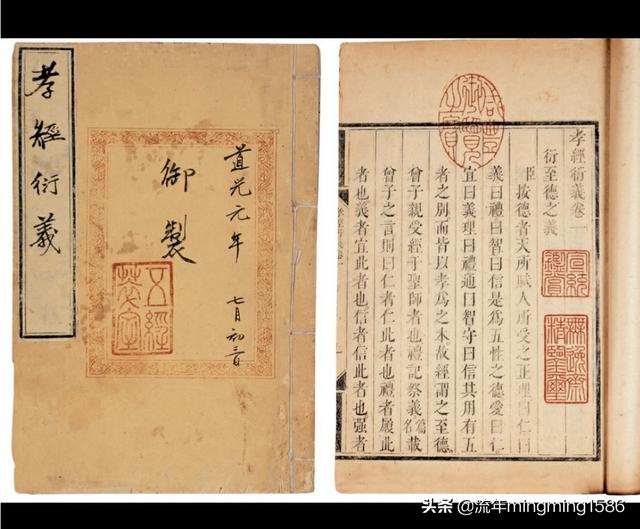 孝經衍義
道光元年
七月初三日
御製
咸豐御覽之寶
孝經衍義卷一
衍至德之義
臣按德者天所賦人所受之正理曰仁曰
義曰禮曰智曰信是爲五性之德愛曰仁
宜曰義理曰禮通曰智守曰信其用有五
者之別而皆以孝爲之本故經謂之至德
曾子親受經于聖師者也禮記祭義篇名載
曾子之言則曰仁者仁此者也禮者履此
者也義者宜此者也信者信此者也强者
宣統鑑賞
無逸齋精鑑璽
头条 @流年mingming1586